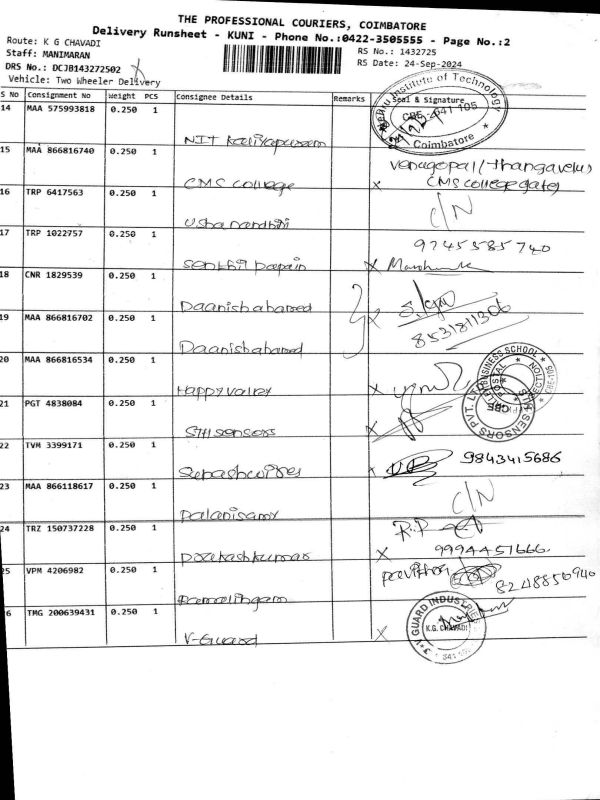 THE PROFESSIONAL COURIERS, COIMBATORE
Delivery Runsheet - KUNI - Phone No.:0422-3505555 - Page No.:2
Route: K G CHAVADI
RS No.: 1432725
Staff: MANIMARAN
RS Date: 24-Sep-2024
DRS No.: DCJB143272502
Vehicle: Two Wheeler Delivery
S No Consignment No Weight PCS Consignee Details Remarks Seal & Signature
14 MAA 575993818 0.250 1 NIT Kaliyapuram
Institute of Technology
Coimbatore
15 MAA 866816740 0.250 1 CMS college
venagopal (Thangavelu)
x CMS college gate
16 TRP 6417563 0.250 1 Usha nandhini C/N
17 TRP 1022757 0.250 1 Senthil papain
9745585740
x
18 CNR 1829539 0.250 1 Daanish ahamed
19 MAA 866816702 0.250 1 Daanish ahamed
x
8531811306
20 MAA 866816534 0.250 1 Happy valley x
BUSINESS SCHOOL
21 PGT 4838084 0.250 1 STM sensors x
SENSORS PVT. LTD
CBE
22 TVM 3399171 0.250 1 Subash wires x 9843415686
23 MAA 866118617 0.250 1 Palanisamy C/N
24 TRZ 150737228 0.250 1 Prakash kumar
R.P
x 9994451666
25 VPM 4206982 0.250 1 Ramalingam
Pavithra
8248850940
26 TMG 200639431 0.250 1 V-Guard x
GUARD INDUSTRIES
K.G. CHAVADI